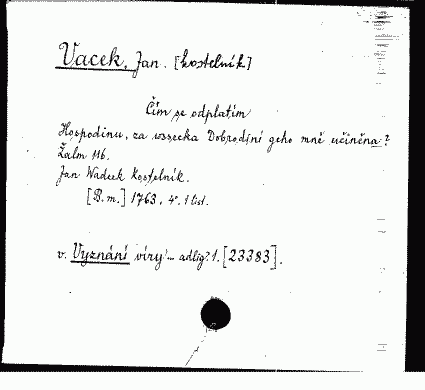 Vacek, Jan. [kostelník]
Čím se odplatím
Hospodinu, za wssecka Dobrodiní geho mně učiněna?
Žalm 116.
Jan Wacek Kostelník.
[B.m.] 1763, 4°. 1 list.
v. Vyznání víry... adlig? 1. [23383].